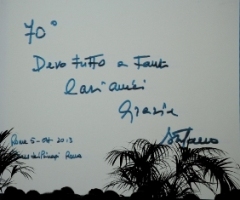 70°
Devo tutto a tanti
Cari amici
Grazie
Stefano
5-04-2013
Roma